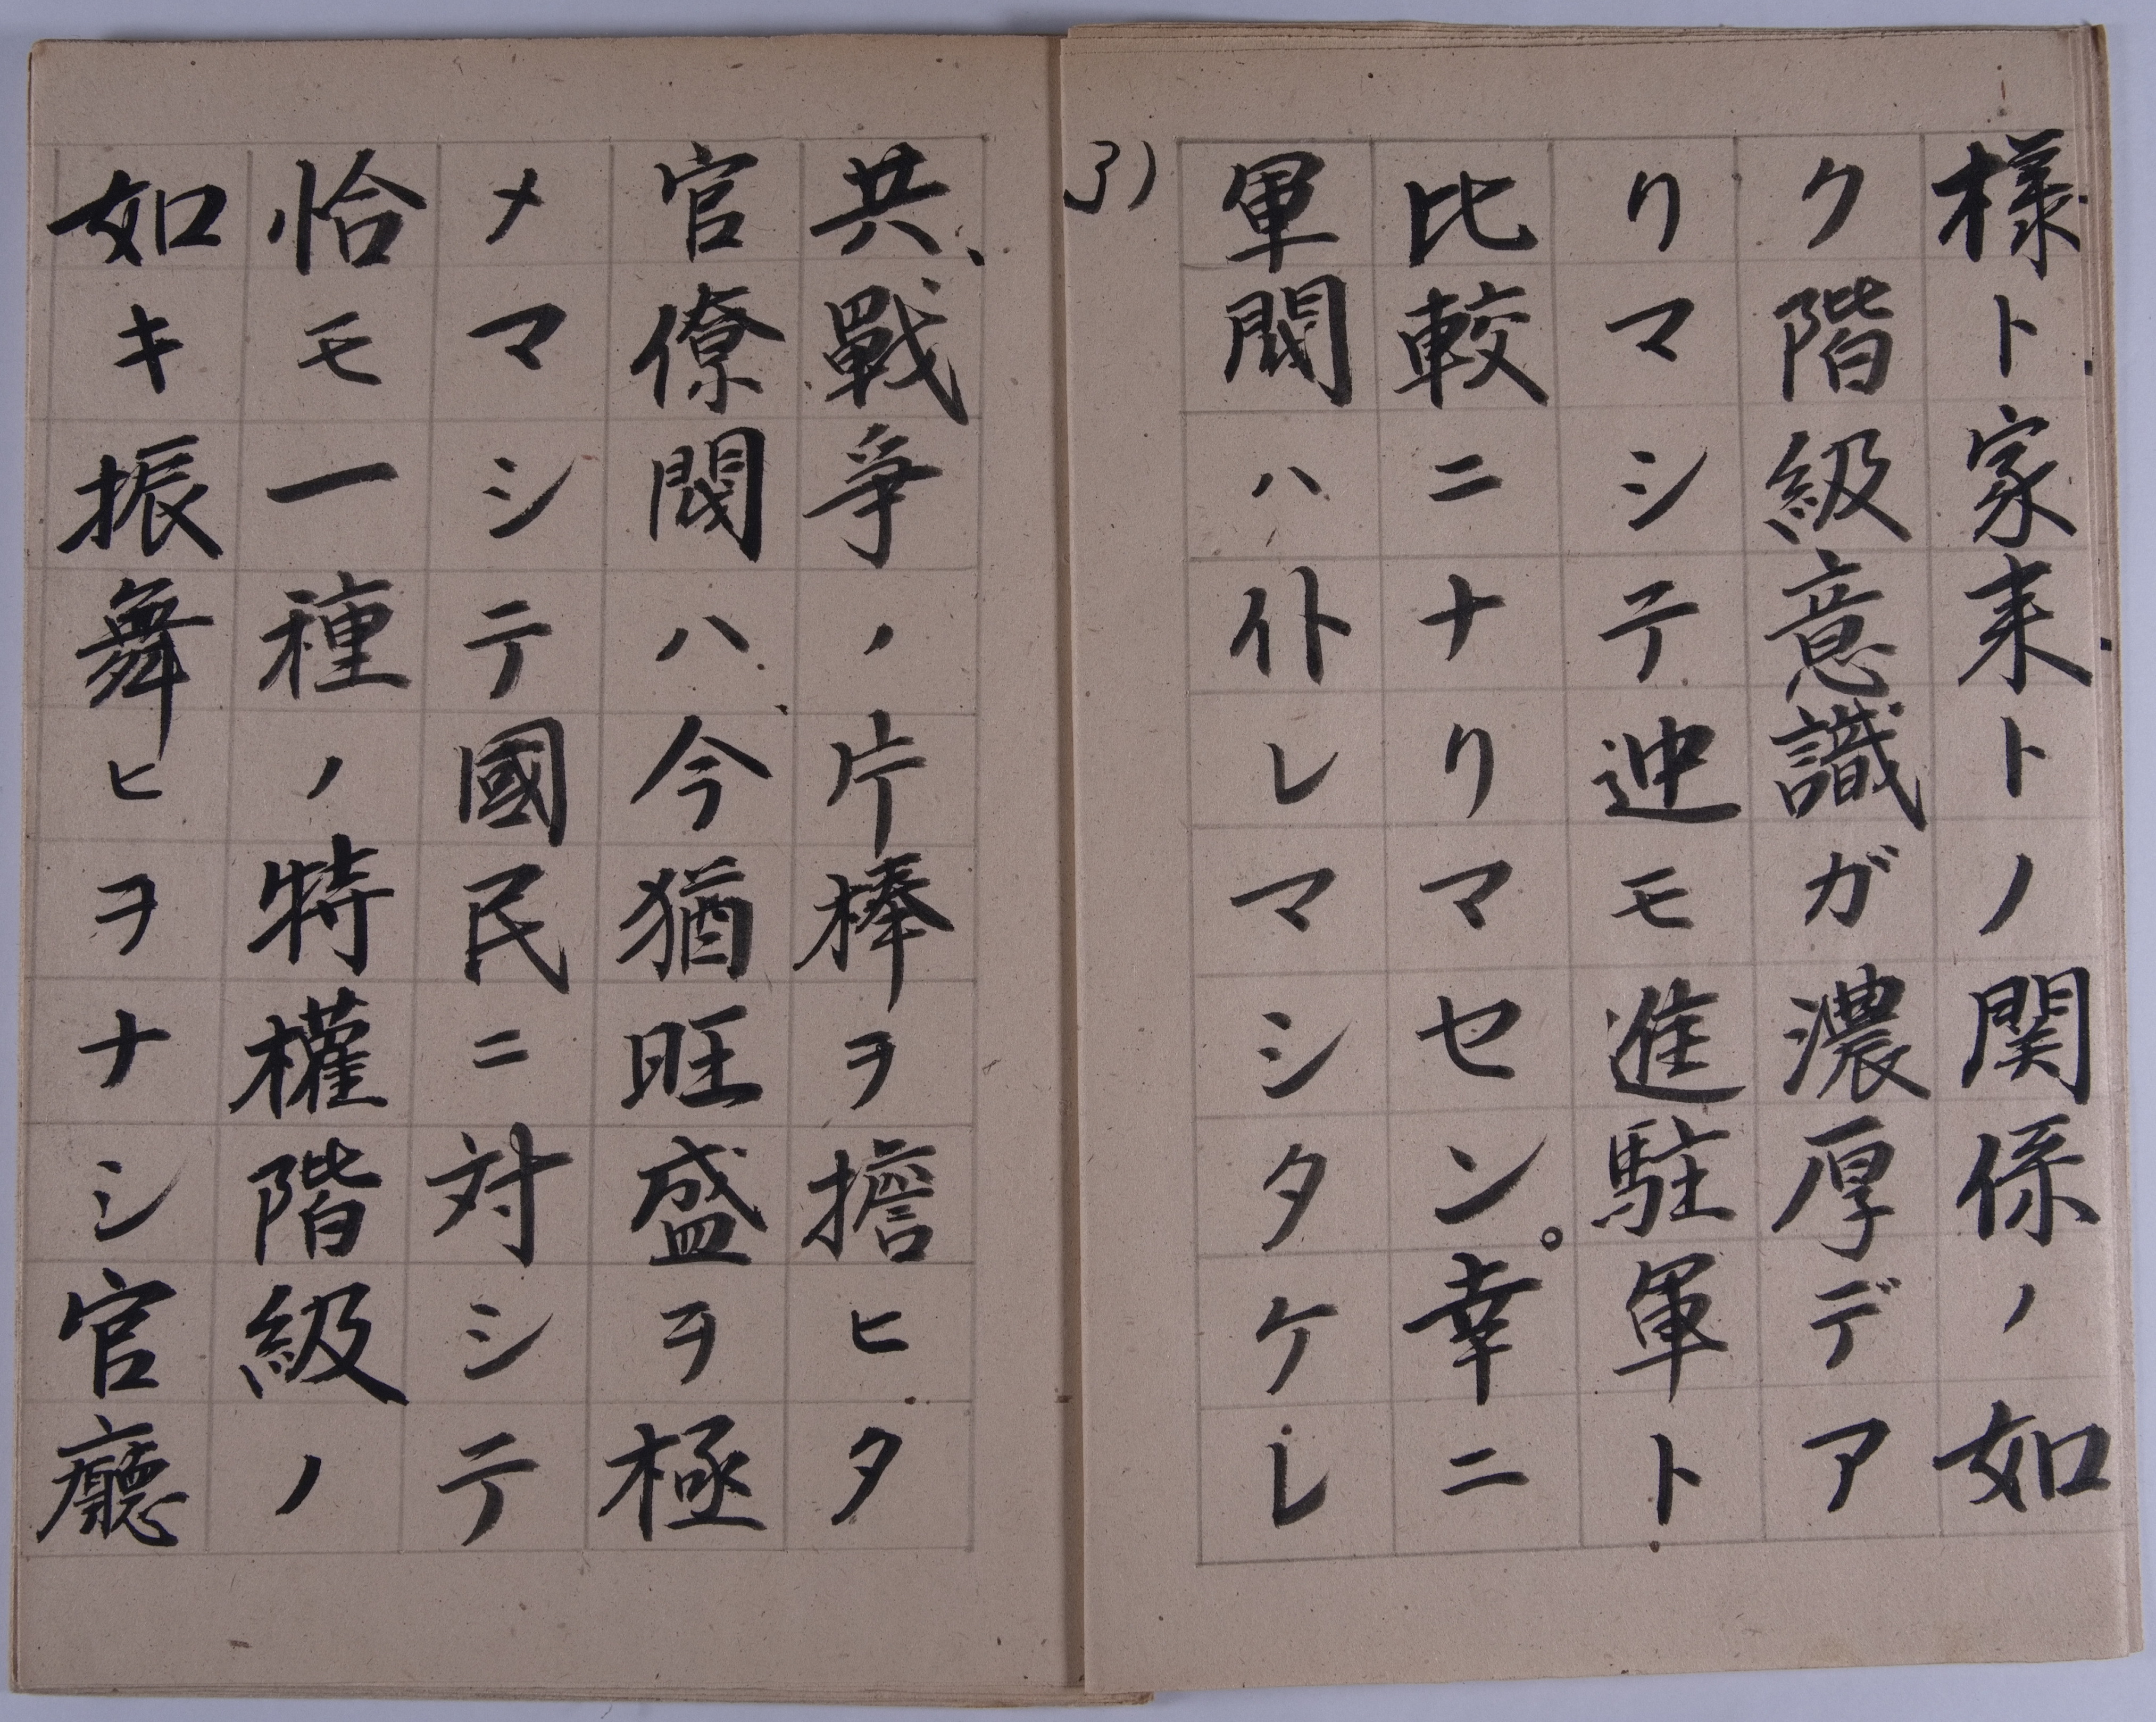 様ト家来トノ関係ノ如
ク階級意識ガ濃厚デア
リマシテ迚モ進駐軍ト
比較ニナリマセン。幸ニ
軍閥ハ仆レマシタケレ
共、戰争ノ片棒ヲ擔ヒタ
官僚閥ハ、今猶旺盛ヲ極
メマシテ國民ニ対シテ
恰モ一種ノ特權階級ノ
如キ振舞ヒヲナシ官廳